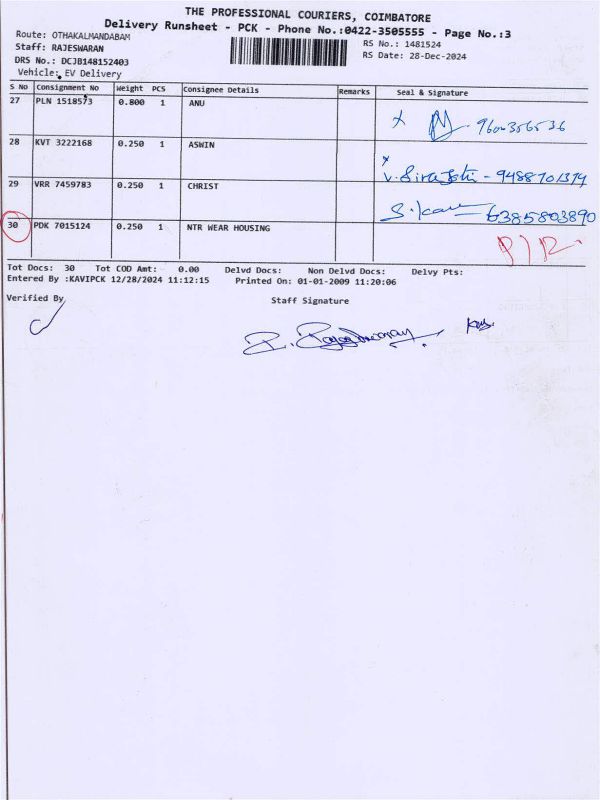 THE PROFESSIONAL COURIERS, COIMBATORE
Delivery Runsheet - PCK - Phone No.:0422-3505555 - Page No.:3
Route: OTHAKALMANDABAM
Staff: RAJESWARAN
DRS No.: DCJB148152403
Vehicle: EV Delivery
RS No.: 1481524
RS Date: 28-Dec-2024
S No Consignment No Weight PCS Consignee Details Remarks Seal & Signature
27 PLN 1518573 0.800 1 ANU
28 KVT 3222168 0.250 1 ASWIN
29 VRR 7459783 0.250 1 CHRIST
6385803890
30 PDK 7015124 0.250 1 NTR WEAR HOUSING
Tot Docs: 30 Tot COD Amt: 0.00 Delvd Docs: Non Delvd Docs: Delvy Pts:
Entered By :KAVIPCK 12/28/2024 11:12:15 Printed On: 01-01-2009 11:20:06
Verified By
Staff Signature